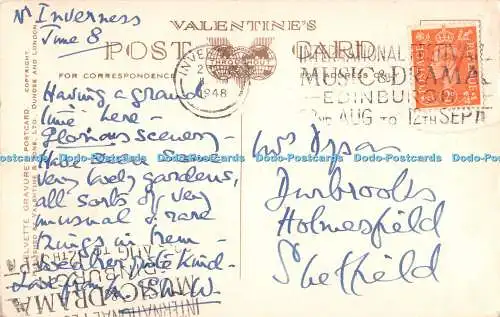 Nr Inverness
June 8
VALENTINE'S
POST CARD
FOR CORRESPONDENCE
Having a grand
time here -
Glorious scenery -
Have seen some
very lovely gardens,
all sorts of very
unusual & rare
things in them -
Weather quite kind -
Love from
INVERNESS
1948
INTERNATIONAL FESTIVAL
MUSIC & DRAMA
EDINBURGH
AUG TO 12TH SEPT
Mrs Dyson
Durbrooks
Holmesfield
Sheffield
HELVETTE GRAVURE POSTCARD. COPYRIGHT.
VALENTINE & SONS, LTD., DUNDEE AND LONDON
MUSIC & DRAMA
EDINBURGH
INTERNATIONAL
Dodo-Postcards Dodo-Postcards Dodo-Postcards Dodo-Postcards Dodo-Postcards Dodo-Postcards